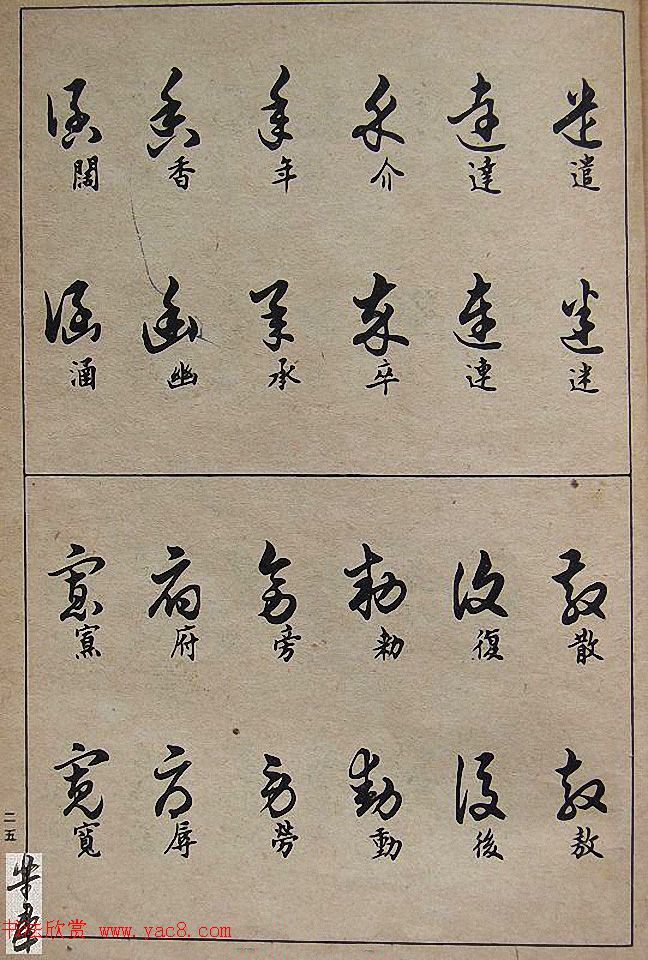 遣 迷
達 連
介 卒
年 承
香 幽
闊 涵
散 敖
復 後
勑 動
旁 勞
府 辱
寬
二五
书法欣赏 www.yac8.com